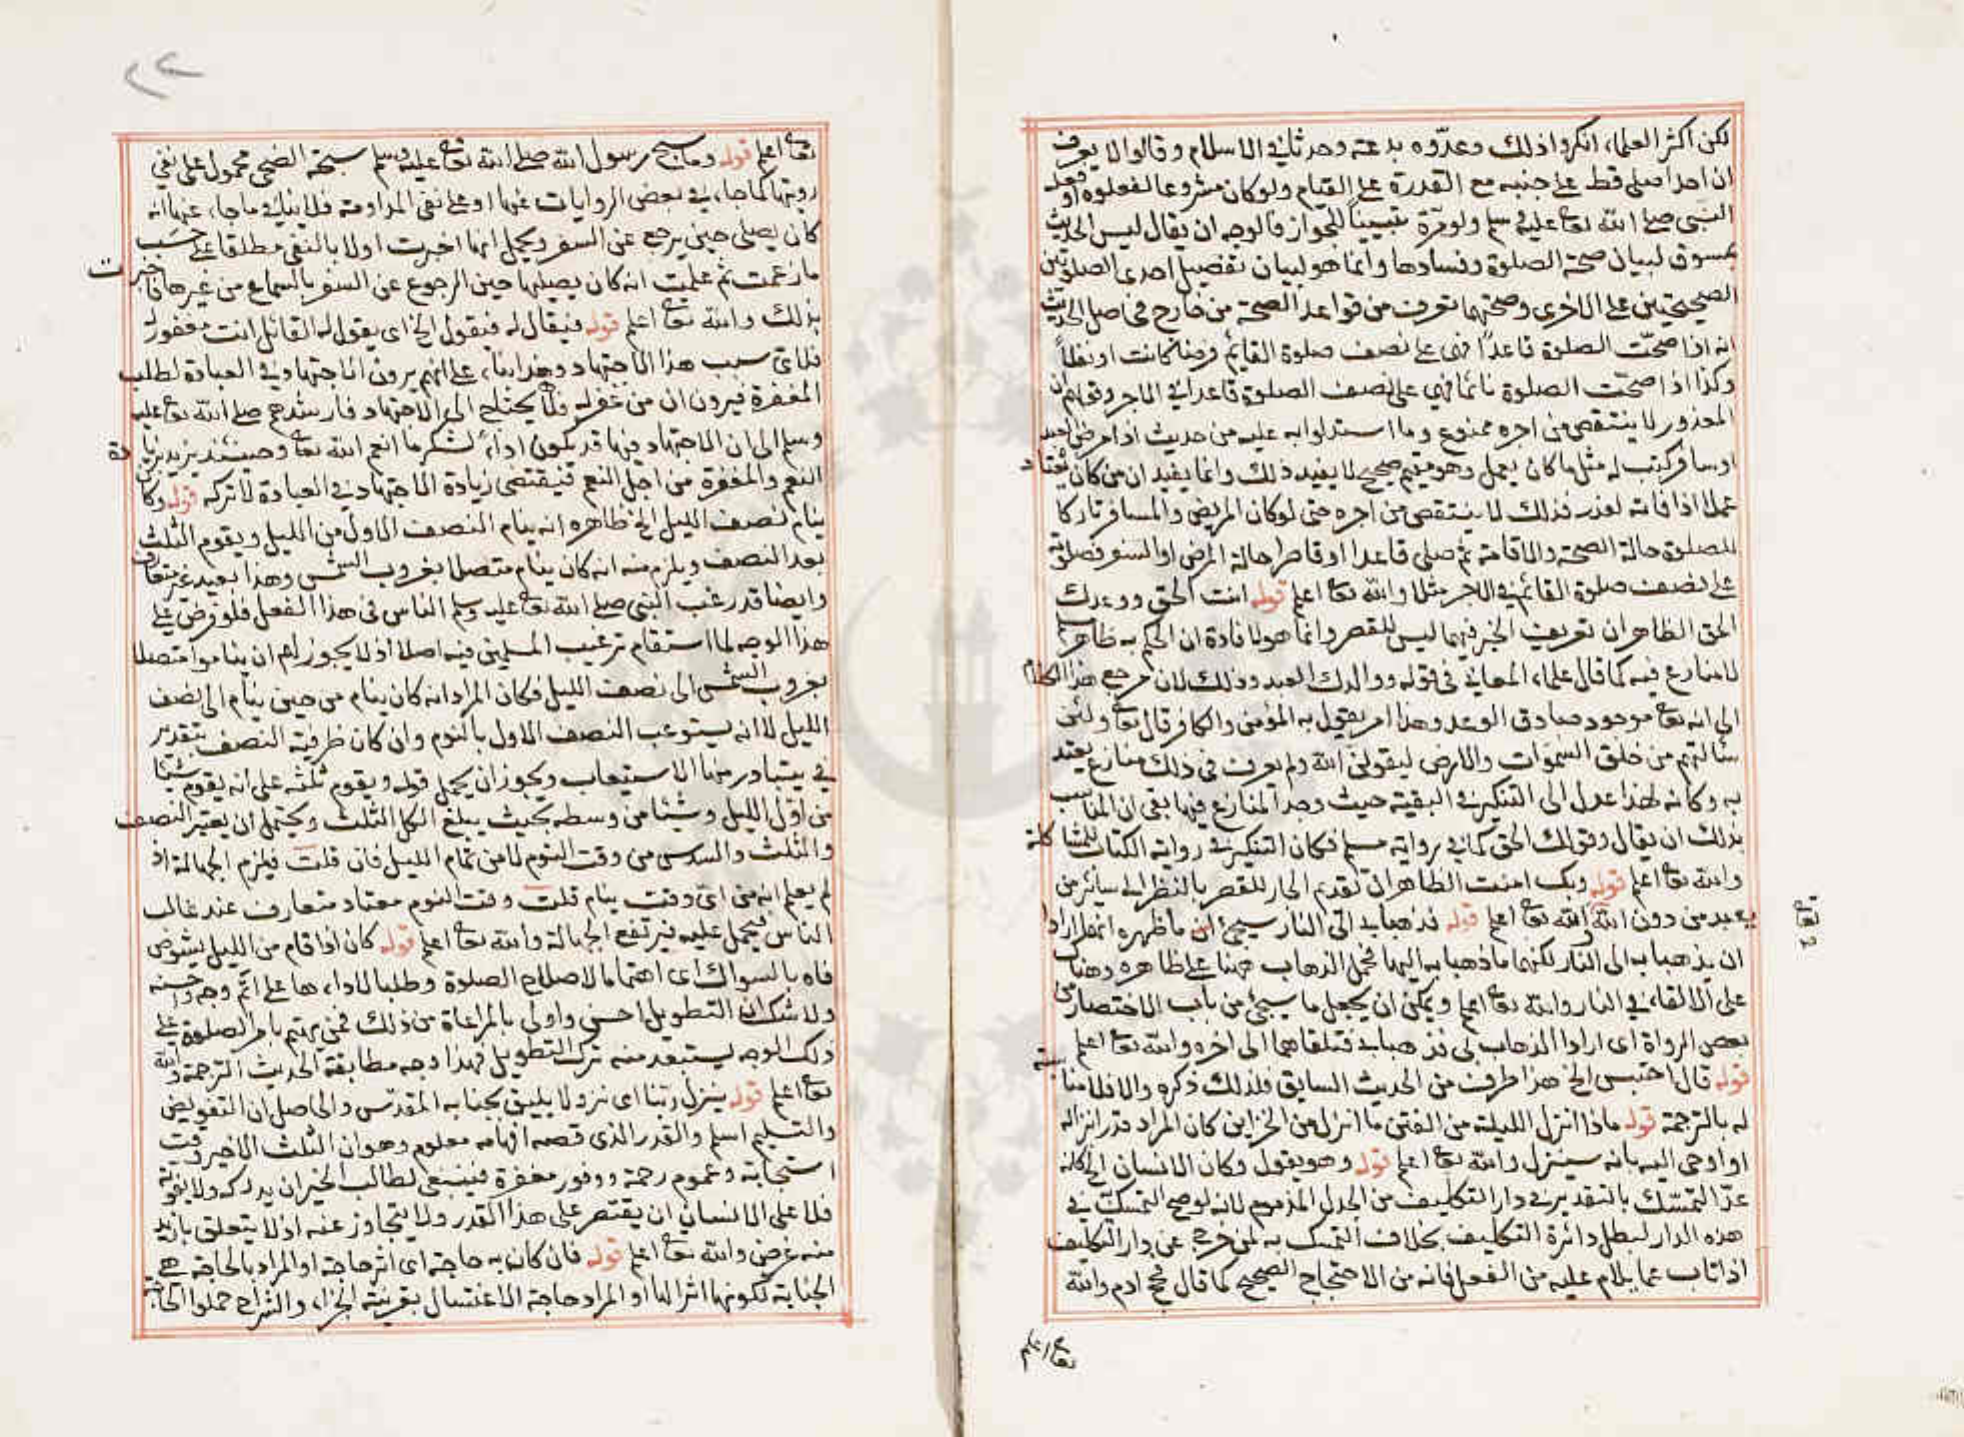 لكن اكثر العلماء انكروا ذلك وعدّوه بدعة وحدثا في الاسلام وقالوا لا يعرف
ان احدا صلى قط على جنبه مع القدرة على القيام ولو كان مشروعا لفعلوه او فعله
النبي صلى الله تعا عليه وسلم ولو مرّة تبيينا للجواز فالوجه ان يقال ليس الحديث
بمسوق لبيان صحة الصلوة وفسادها وانما هو لبيان تفضيل احدى الصلوتين
الصحيحتين على الاخرى وصحتهما تعرف من قواعد الصحة من خارج فى اصل الحديث
انه اذا صحّت الصلوة قاعدًا فهى على نصف صلوة القائم فرضا كانت او نفلاً
وكذا اذا صحّت الصلوة نائما فهي على نصف الصلوة قاعدا في الاجر وقولهم ان
المعذور لا ينتقص من اجره ممنوع وما استدلوا به عليه من حديث اذا مرض العبد
او سافر كتب له مثل ما كان يعمل وهو مقيم صحيح لا يفيد ذلك وانما يفيد ان من كان يعتاد
عملا اذا فاته لعذر فذلك لا ينتقص من اجره حتى لو كان المريض والمسافر تاركا
للصلوة حالة الصحة والاقامة ثم صلى قاعدا او قاصرا حالة المرض او السفر فصلوته
على نصف صلوة القائم في الاجر مثلا والله تعا اعلم قوله انت الحق ووعدك
الحق الظاهر ان تعريف الخبر فيهما ليس للقصر وانما هو لافادة ان الحكم به ظاهر مسلم
لا منازع فيه كما قال علماء المعاني فى قوله ووالدك العبد وذلك لان مرجع هذا الكلام
الى انه تعا موجود صادق الوعد وهذا امر يقول به المؤمن والكافر قال تعا ولئن
سألتهم من خلق السموات والارض ليقولن الله ولم يعرف فى ذلك منازع يعتد
به وكانه لهذا عدل الى التنكير في البقية حيث وجد المنازع فيها بقى ان المناسب
بذلك ان يقال وقولك الحق كما في رواية مسلم فكان التنكير في رواية الكتاب للمشاكلة
والله تعا اعلم قوله وبك امنت الظاهر ان تقديم الجار للقصر بالنظر الى سائر من
يعبد من دون الله والله تعا اعلم قوله فذهبا بى الى النار سيجئ ان ما ظهره انهما ارادا
ان يذهبا به الى النار لكنهما ما ذهبا به اليها فحمل الذهاب ههنا على ظاهره وهناك
على الالقاء في النار والله تعا اعلم ويمكن ان يجعل ما سيجئ من باب الاختصار من
بعض الرواة اى ارادا الذهاب بى فذهبا بى فتلقاهما الى اخره والله تعا اعلم
قوله قال احتبس الخ هذا طرف من الحديث السابق فلذلك ذكره والا فلا مناسبة
له بالترجمة قوله ماذا انزل الليلة من الفتن ما انزل من الخزاين كان المراد قدر انزاله
او اوحى اليه بانه سينزل والله تعا اعلم قوله وهو يقول وكان الانسان الخ كانه
عدّ التمسّك بالتقدير في دار التكليف من الجدل المذموم لانه لو صح التمسك في
هذه الدار لبطل دائرة التكليف بخلاف التمسك به لمن خرج عن دار التكليف
اذا تاب عما يلام عليه من الفعل فانه من الاحتجاج الصحيح كما قال فحج ادم والله
تعا اعلم
تعا اعلم قوله وما سبح رسول الله صلى الله تعا عليه وسلم سبحة الضحى محمول على نفي
رويتها كما جاء في بعض الروايات عنها او على نفى المداومة فلا ينافي ما جاء عنها انه
كان يصلى حين يرجع عن السفر ويحمل انها اخبرت اولا بالنفى مطلقا على حسب
ما زعمت ثم علمت انه كان يصليها حين الرجوع عن السفر بالسماع من غيرها فاخبرت
بذلك والله تعا اعلم قوله فيقال له فيقول الخ اى يقول له القائل انت مغفور له
فلاي سبب هذا الاجتهاد وهذا بناء على انهم يرون ان اجتهاد في العبادة لطلب
المغفرة فيرون ان من غفر له فلا يحتاج الى الاجتهاد فارشدهم صلى الله تعا عليه
وسلم الى ان الاجتهاد فيها قد يكون اداءً لشكر ما انعم الله تعا وحينئذ يزيد بزيادة
النعم والمغفرة من اجل النعم فيقتضى زيادة الاجتهاد في العبادة لا تركه قوله وكان
ينام نصف الليل الخ ظاهره انه ينام النصف الاول من الليل ويقوم الثلث
بعد النصف ويلزم منه انه كان ينام متصلا بغروب الشمس وهذا بعيد غير متعارف
وايضا قد رغب النبى صلى الله تعا عليه وسلم الناس فى هذا الفعل فلو فرض على
هذا الوجه لما استقام ترغيب المسلمين فيه اصلا اذ لا يجوز لهم ان يناموا متصلا
بغروب الشمس الى نصف الليل فكان المراد انه كان ينام من حين ينام الى نصف
الليل لا انه يستوعب النصف الاول بالنوم وان كان ظرفية النصف بتقدير
في يتبادر منها الاستيعاب ويجوز ان يحمل قوله ويقوم ثلثه على انه يقوم شيئا
من اوّل الليل وشيئا من وسطه بحيث يبلغ الكل الثلث ويحتمل ان يعتبر النصف
والثلث والسدس من وقت النوم لا من تمام الليل فان قلت فيلزم الجهالة اذ
لم يعلم انه من اىّ وقت ينام قلت وقت النوم معتاد متعارف عند غالب
الناس فيحمل عليه فيرتفع الجهالة والله تعا اعلم قوله كان اذا قام من الليل يشوص
فاه بالسواك اى اهتماما لاصلاح الصلوة وطلبا لاداءها على اتم وجه واحسنه
ولا شك ان التطويل احسن واولى بالمراعاة من ذلك فمن يهتم بامر الصلوة على
ذلك الوجه يستبعد منه ترك التطويل فهذا وجه مطابقة الحديث الترجمة والله
تعا اعلم قوله ينزل ربنا اى نزولا يليق بجنابه المقدّس والحاصل ان التفويض
والتسليم اسلم والقدر الذى قصد افهامه معلوم وهو ان الثلث الاخير وقت
استجابة وعموم رحمة ووفور مغفرة فينبغى لطالب الخير ان يدركه ولا يفوته
فلا على الانسان ان يقتصر على هذا القدر ولا يتجاوز عنه اذ لا يتعلق بازيد
منه غرض والله تعا اعلم قوله فان كان به حاجة اى اثر حاجة او المراد بالحاجة هى
الجنابة لكونها اثرا لها او المراد حاجة الاغتسال بقرينة الجزاء والشراح حملوا الحاجة